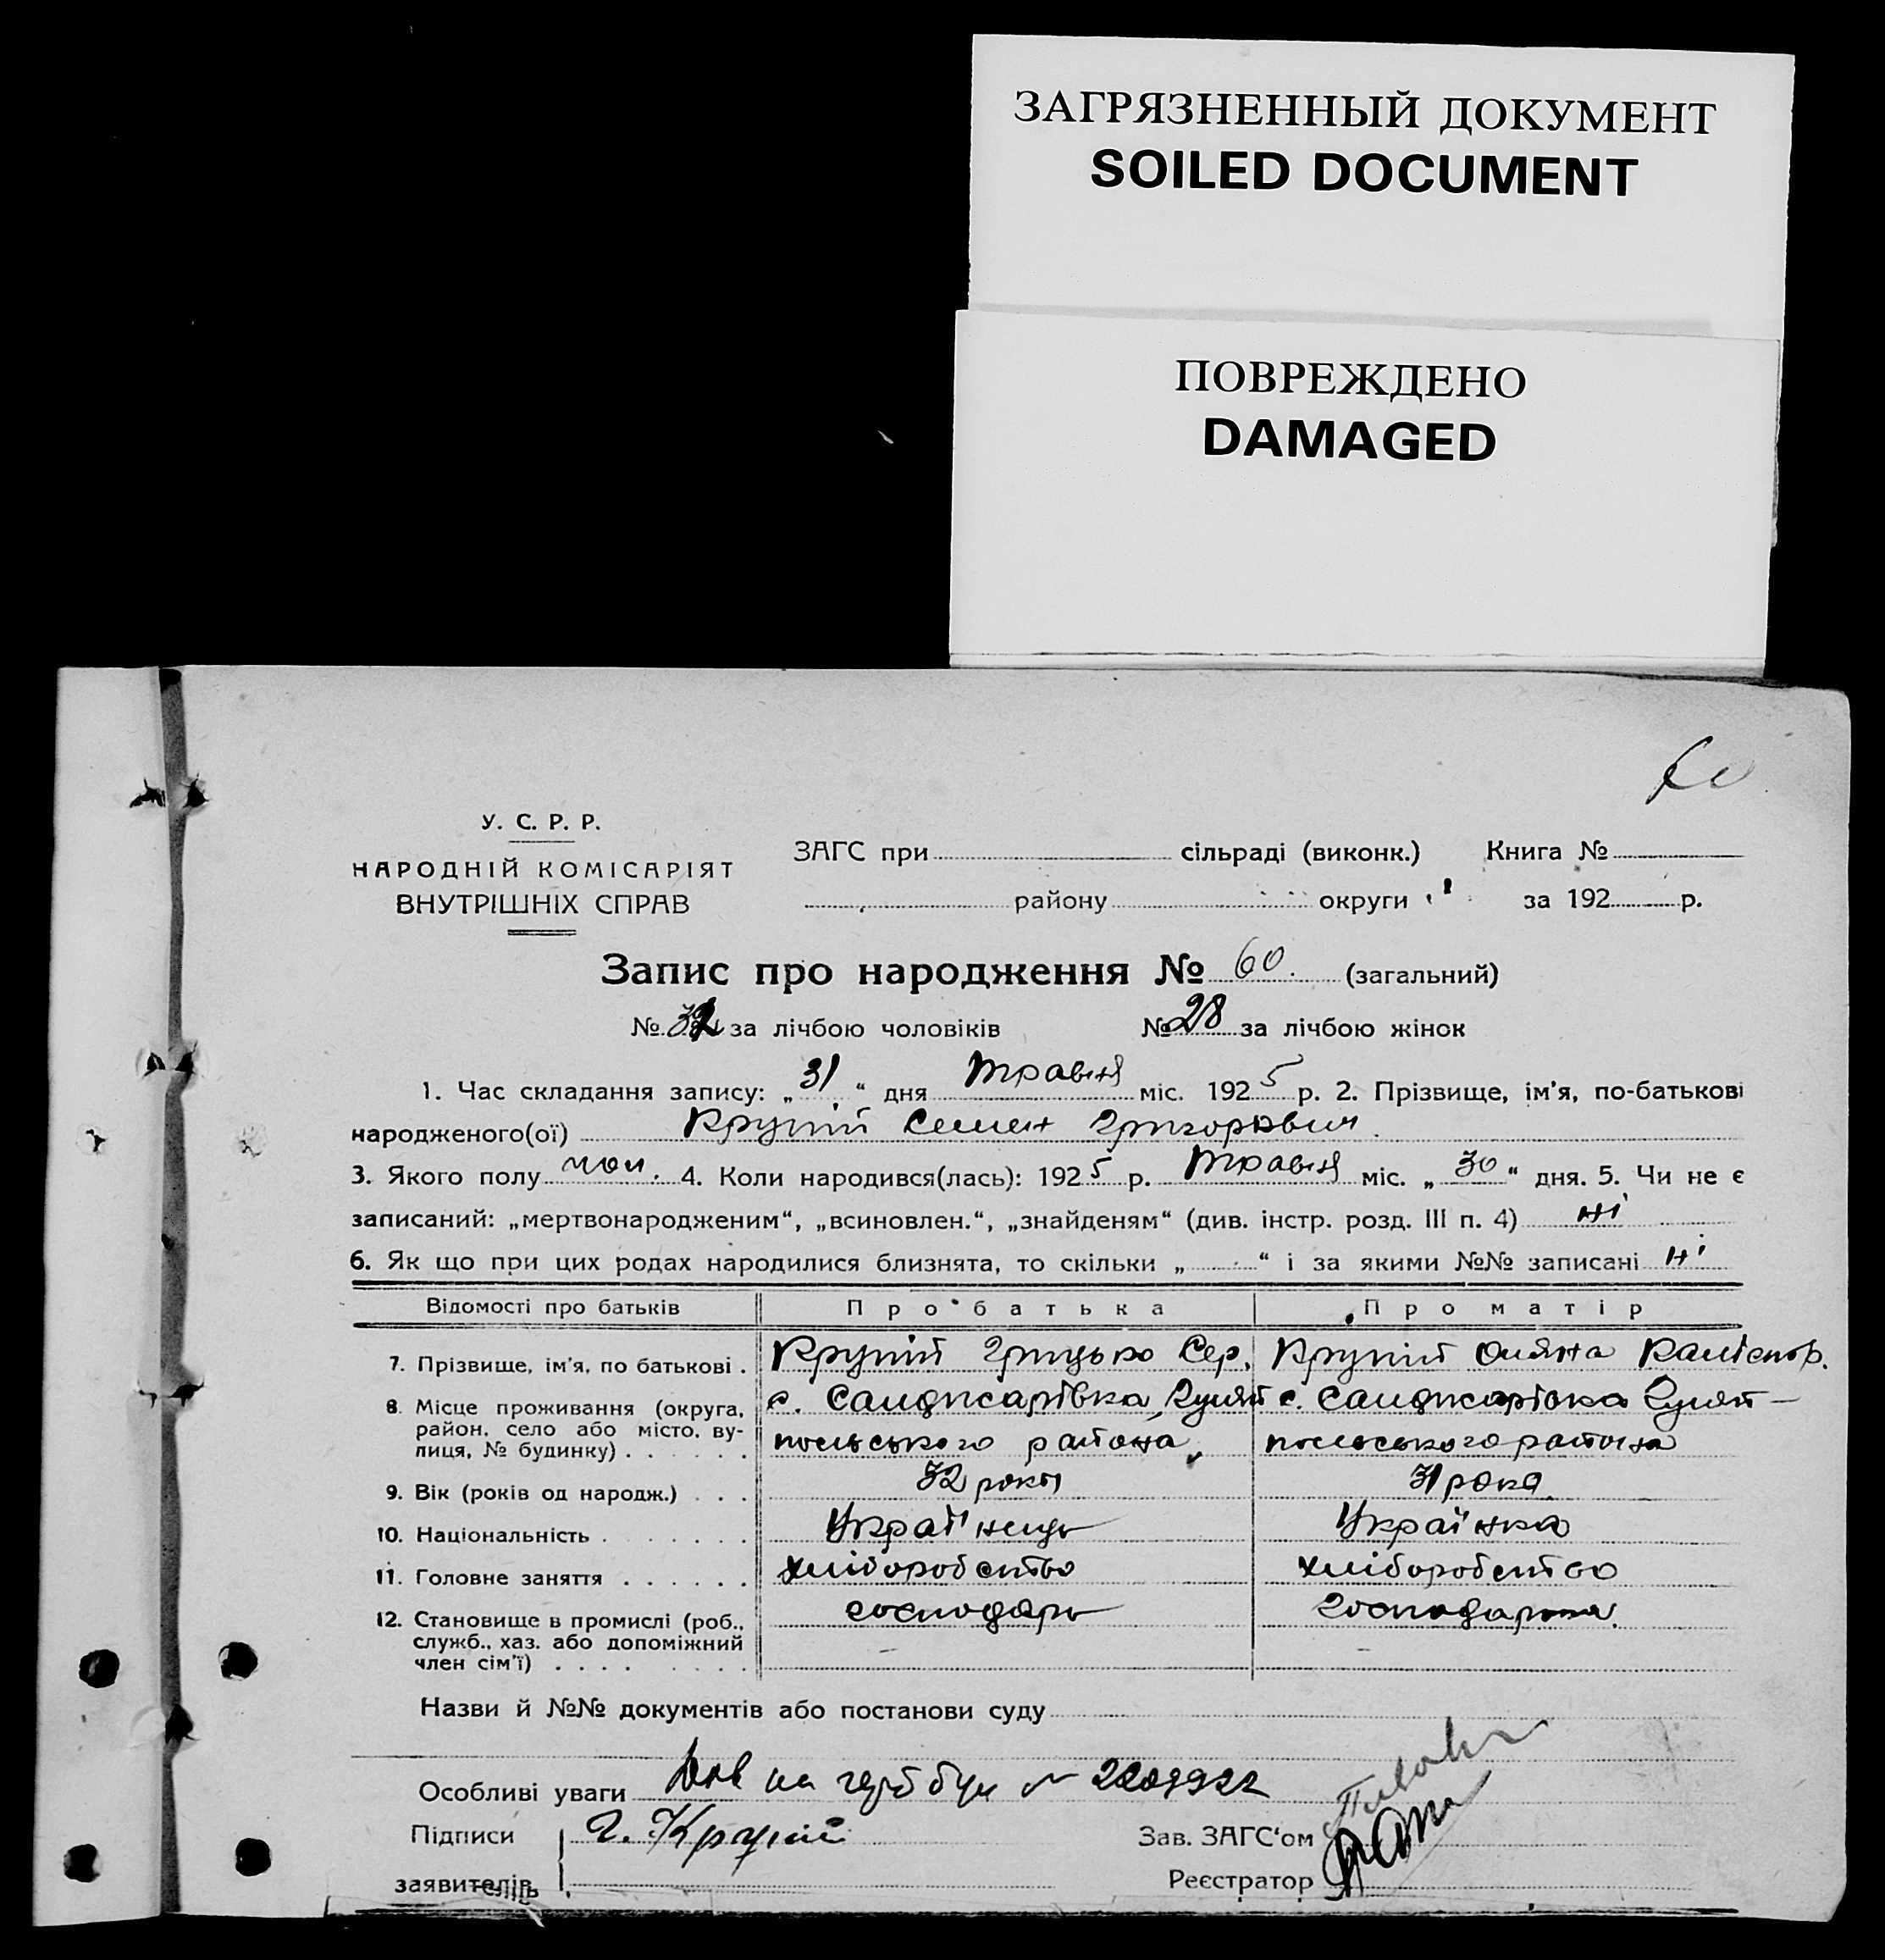 ЗАГРЯЗНЕННЫЙ ДОКУМЕНТ
SOILED DOCUMENT
ПОВРЕЖДЕНО
DAMAGED
У. С. Р. Р.
НАРОДНІЙ КОМІСАРІЯТ
ВНУТРІШНІХ СПРАВ
ЗАГС при сільраді (виконк.) Книга №
району округи за 192 р.
Запис про народження № 60. (загальний)
№ 32 за лічбою чоловіків № 28 за лічбою жінок
1. Час складання запису: „31“ дня травня міс. 1925 р. 2. Прізвище, ім'я, по-батькові
народженого(ої) Крупій Семен Григорович.
3. Якого полу чол. 4. Коли народився(лась): 1925 р. травня міс. „30“ дня. 5. Чи не є
записаний: „мертвонародженим“, „всиновлен.“, „знайденям“ (див. інстр. розд. III п. 4) ні
6. Як що при цих родах народилися близнята, то скільки „ “ і за якими №№ записані ні
Відомості про батьків Про батька Про матір
7. Прізвище, ім'я, по батькові. Крупій Грицько Сер. Крупій Оляна
8. Місце проживання (округа, район, село або місто, ву- лиця, № будинку) с. Санджарівка, Гуляй польського района, с. Санджарівка Гуляй- польського района
9. Вік (років од народж.) 32 роки 31 рока.
10. Національність Україиець Українка
11. Головне заняття хліборобство хліборобство
12. Становище в промислі (роб., служб., хаз. або допоміжний член сім'ї) господарь господарка.
Назви й №№ документів або постанови суду
Особливі уваги на бум №
Підписи Г. Крупій Зав. ЗАГС'ом
заявителів Реєстратор